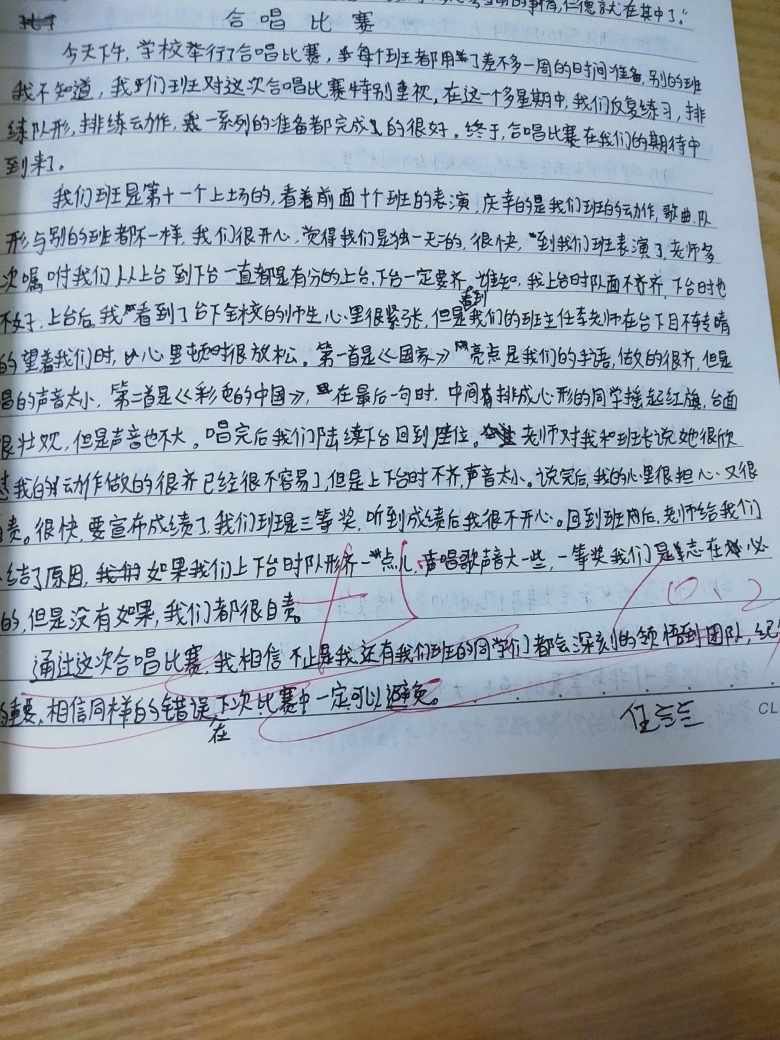 仁德就在其中了。"
合唱比赛
今天下午,学校举行了合唱比赛,每个班都用了差不多一周的时间准备,别的班
我不知道,我们班对这次合唱比赛特别重视,在这一个多星期中,我们反复练习,排
练队形,排练动作,一系列的准备都完成的很好。终于,合唱比赛在我们的期待中
到来了。
我们班是第十一个上场的,看着前面十个班的表演,庆幸的是我们班的动作,歌曲,队
形与别的班都不一样,我们很开心,觉得我们是独一无二的,很快,到我们班表演了,老师多
次嘱咐我们从上台到下台一直都是有分的上台,下台一定要齐,谁知,我上台时队面不齐齐,下台时也
不好,上台后,我看到了台下全校的师生心里很紧张,但是看到我们的班主任李老师在台下目不转睛
的望着我们时,心里顿时很放松。第一首是《国家》亮点是我们的手语,做的很齐,但是
唱的声音太小,第二首是《彩色的中国》,在最后一句时,中间有排成心形的同学摇起红旗,台面
很壮观,但是声音也不大。唱完后我们陆续下台回到座位。老师对我和班长说她很欣
我的动作做的很齐已经很不容易了,但是上下台时不齐,声音太小。说完后,我的心里很担心又很
责。很快,要宣布成绩了,我们班是三等奖,听到成绩后我很不开心。回到班内后,老师给我们
结了原因,如果我们上下台时队形齐一点儿,唱歌声音大一些,一等奖我们是志在必
的,但是没有如果,我们都很自责。
通过这次合唱比赛,我相信不止是我,还有我们班的同学们都会深刻的领悟到团队,纪
重要,相信同样的错误在下次比赛中一定可以避免。
10、2
CL